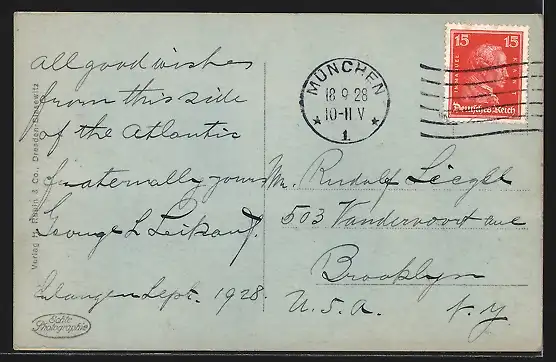 All good wishes
from this side
of the Atlantic
fraternally yours
George L
Erlangen Sept. 1928.
Echte
Photographie
Co., Dresden-Blasewitz
MÜNCHEN
18 9 28
10-11 V
* 1. *
15 15
IMMANUEL
Deutsches Reich
Mr. Rudolf
503 Vandervoort ave
Brooklyn
U.S.A. N.Y.